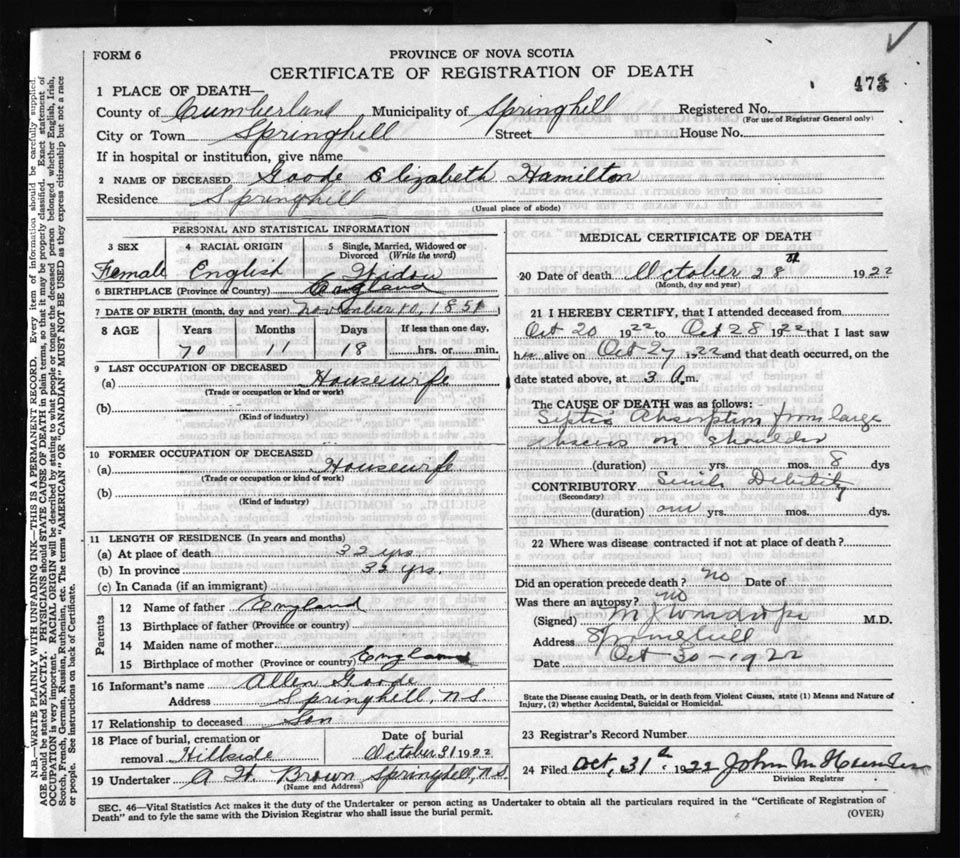 FORM 6
PROVINCE OF NOVA SCOTIA
CERTIFICATE OF REGISTRATION OF DEATH
1 PLACE OF DEATH—
County of Cumberland Municipality of Springhill Registered No.
(For use of Registrar General only)
City or Town Springhill Street House No.
If in hospital or institution, give name
2 NAME OF DECEASED Goode Elizabeth Hamilton
Residence Springhill
(Usual place of abode)
PERSONAL AND STATISTICAL INFORMATION
3 SEX 4 RACIAL ORIGIN 5 Single, Married, Widowed or Divorced (Write the word)
Female English Widow
6 BIRTHPLACE (Province or Country) England
7 DATE OF BIRTH (month, day and year) November 10, 1851
8 AGE Years Months Days If less than one day,
70 11 18 hrs. or min.
9 LAST OCCUPATION OF DECEASED
(a) Housewife
(Trade or occupation or kind of work)
(b)
(Kind of industry)
10 FORMER OCCUPATION OF DECEASED
(a) Housewife
(Trade or occupation or kind of work)
(b)
(Kind of industry)
11 LENGTH OF RESIDENCE (In years and months)
(a) At place of death 32 yrs
(b) In province 32 yrs.
(c) In Canada (if an immigrant)
Parents
12 Name of father England
13 Birthplace of father (Province or country)
14 Maiden name of mother
15 Birthplace of mother (Province or country) England
16 Informant's name Allen Goode
Address Springhill, N.S.
17 Relationship to deceased Son
18 Place of burial, cremation or removal Hillside
Date of burial October 31 1922
19 Undertaker A. W. Brown Springhill, N.S.
(Name and Address)
MEDICAL CERTIFICATE OF DEATH
20 Date of death October 28 1922
(Month, day and year)
21 I HEREBY CERTIFY, that I attended deceased from
Oct 20 1922 to Oct 28 1922 that I last saw
her alive on Oct 27 1922 and that death occurred, on the
date stated above, at 3 A.m.
The CAUSE OF DEATH was as follows:
Septic Absorption from large
abscess on shoulder
(duration) yrs. mos. 8 dys
CONTRIBUTORY Senile Debility
(Secondary)
(duration) one yrs. mos. dys.
22 Where was disease contracted if not at place of death?
Did an operation precede death? no Date of
Was there an autopsy? no
(Signed) M.D.
Address Springhill
Date Oct 30 - 1922
State the Disease causing Death, or in death from Violent Causes, state (1) Means and Nature of
Injury, (2) whether Accidental, Suicidal or Homicidal.
23 Registrar's Record Number
24 Filed Oct. 31 1922 John M Hunter
Division Registrar
SEC. 46—Vital Statistics Act makes it the duty of the Undertaker or person acting as Undertaker to obtain all the particulars required in the "Certificate of Registration of
Death" and to fyle the same with the Division Registrar who shall issue the burial permit.
(OVER)
N.B.—WRITE PLAINLY WITH UNFADING INK—THIS IS A PERMANENT RECORD. Every item of information should be carefully supplied.
AGE should be stated EXACTLY. PHYSICIANS should STATE CAUSE OF DEATH in plain terms, so that it may be properly classified. Exact statement of
OCCUPATION is very important. RACIAL ORIGIN will be described by stating to what people or tongue the deceased person belonged whether English, Irish,
Scotch, French, German, Russian, Ruthenian, etc. The terms "AMERICAN" or "CANADIAN" MUST NOT BE USED as they express citizenship but not a race
or people. See instructions on back of Certificate.